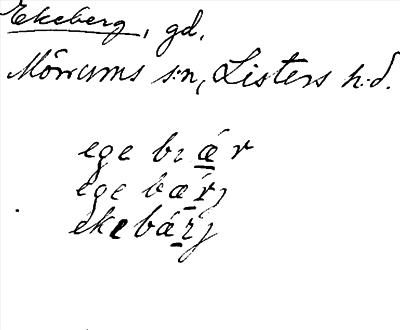 Ekeberg, gd.
Mörrums s:n, Listers h:d.
ege bɿǽr
ege bǽrj
ekebárj